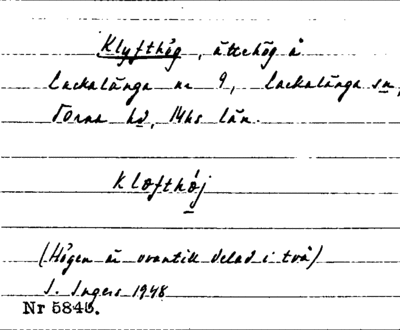 Klyfthög, ättehög å
Lackalänga nr 9, Lackalänga sn,
Torna hd, Mhs län.
Klœfthøj
(Högen är ovantill delad i två)
I. Ingers 1948
Nr 5845.